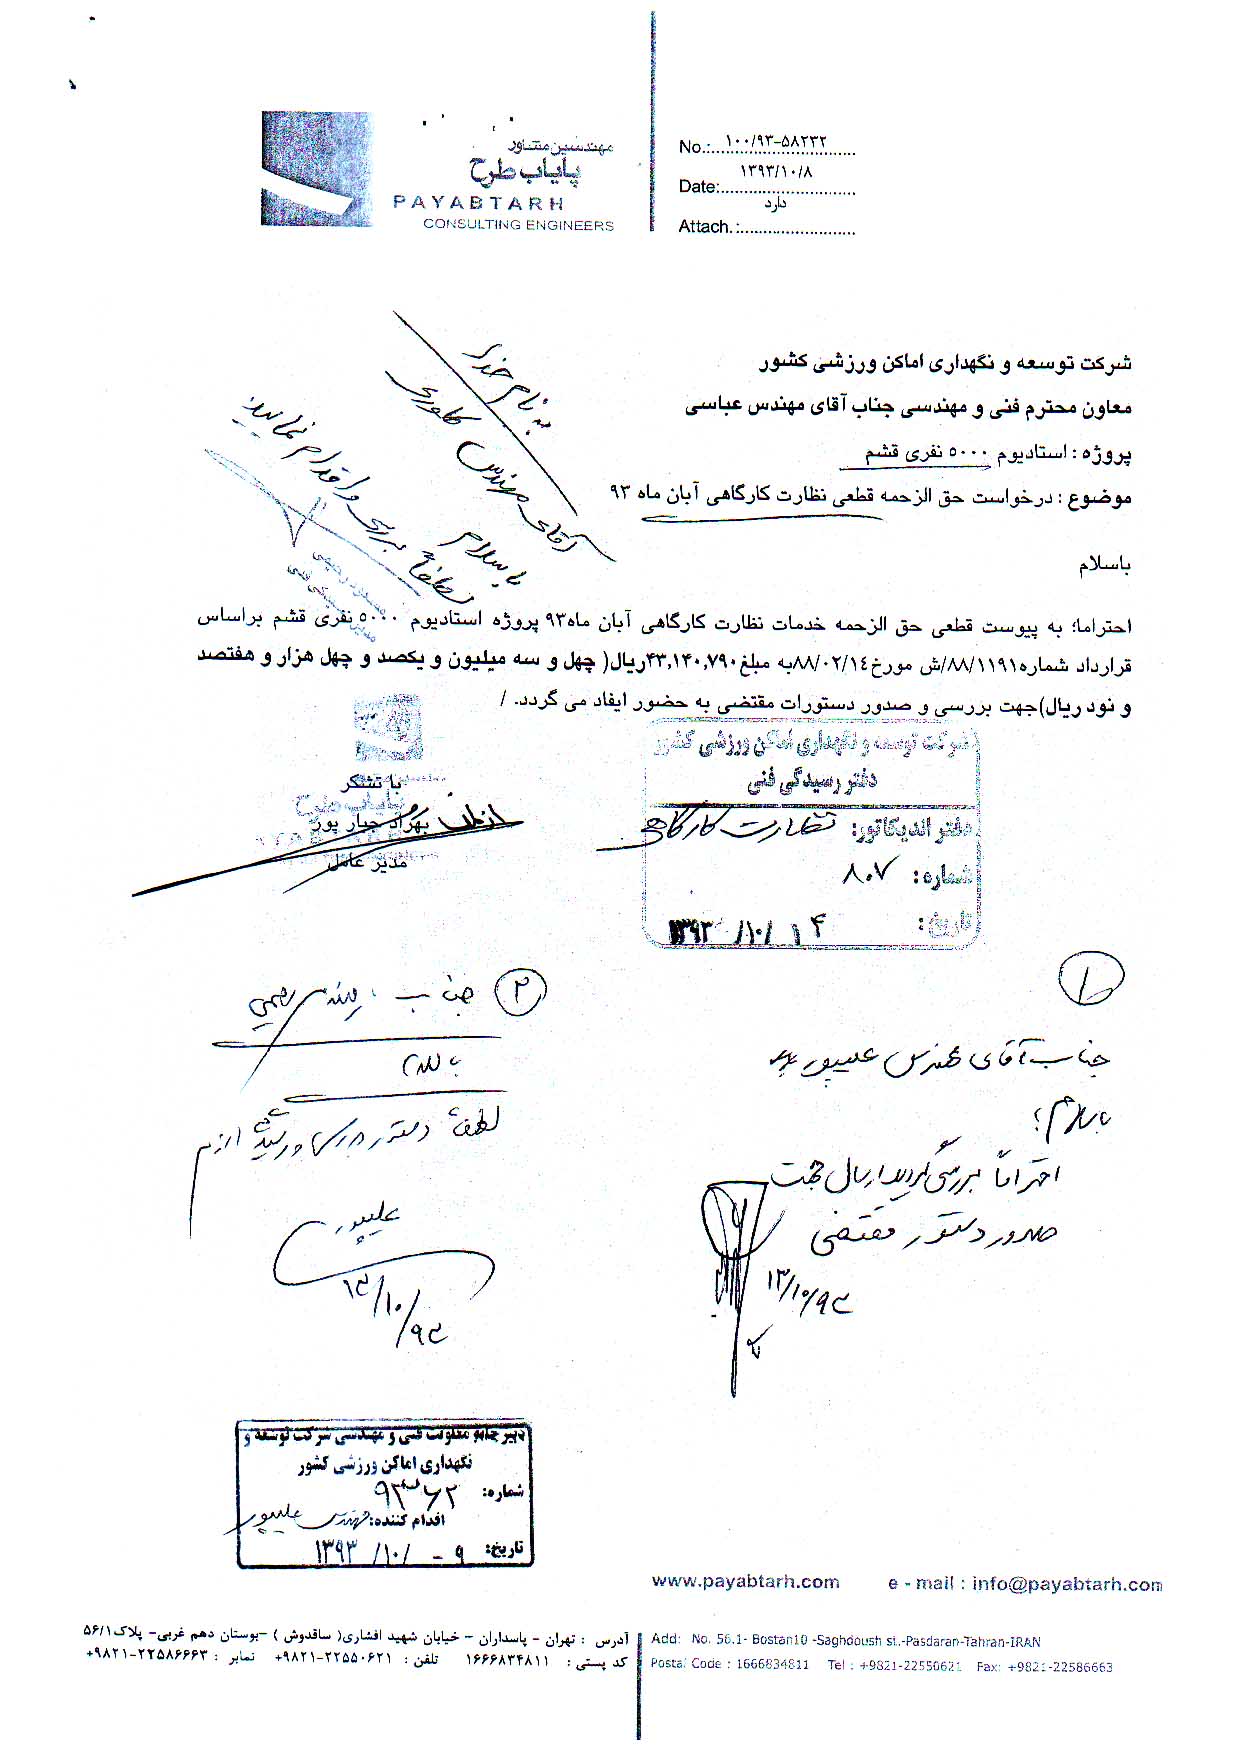 مهندسین مشاور
پایاب طرح
PAYABTARH
CONSULTING ENGINEERS
No.:....۱۰۰/۹۳-۵۸۲۳۲....
Date:....۱۳۹۳/۱۰/۸....
Attach.:....دارد....
شرکت توسعه و نگهداری اماکن ورزشی کشور
معاون محترم فنی و مهندسی جناب آقای مهندس عباسی
پروژه : استادیوم ۵۰۰۰ نفری قشم
موضوع : درخواست حق الزحمه قطعی نظارت کارگاهی آبان ماه ۹۳
به نام خدا
آقای مهندس کاوری
با سلام
لطفاً بررسی و اقدام نمایید
باسلام
احتراما؛ به پیوست قطعی حق الزحمه خدمات نظارت کارگاهی آبان ماه۹۳ پروژه استادیوم ۵۰۰۰ نفری قشم براساس
قرارداد شماره۸۸/۱۱۹۱/ش مورخ۸۸/۰۲/۱٤به مبلغ۴۳,۱۴۰,۷۹۰ریال( چهل و سه میلیون و یکصد و چهل هزار و هفتصد
و نود ریال)جهت بررسی و صدور دستورات مقتضی به حضور ایفاد می گردد. /
با تشکر
بهزاد جبار پور
مدیر عامل
شرکت توسعه و نگهداری اماکن ورزشی کشور
دفتر رسیدگی فنی
دفتر اندیکاتور: نظارت کارگاهی
شماره: ۸۰۷
تاریخ: ۱۴ /۱۰/ ۱۳۹۳
۱
جناب آقای مهندس علیپور
با سلام؛
احتراماً بررسی گردید ارسال جهت
صدور دستور مقتضی
۱۳/۱۰/۹۳
۲ جناب مهندس رحیمی
با سلام
لطفاً دستور بررسی و رسیدگی
علیپور
۱۳/۱۰/۹۳
دبیرخانه معاونت فنی و مهندسی شرکت توسعه و
نگهداری اماکن ورزشی کشور
شماره:
اقدام کننده: مهندس علیپور
تاریخ: ۹ - /۱۰/ ۱۳۹۳
www.payabtarh.com e - mail : info@payabtarh.com
آدرس : تهران - پاسداران - خیابان شهید افشاری( ساقدوش ) -بوستان دهم غربی- پلاک۵۶/۱
کد پستی : ۱۶۶۶۸۳۴۸۱۱ تلفن : ۲۲۵۵۰۶۲۱-۹۸۲۱+ نمابر : ۲۲۵۸۶۶۶۳-۹۸۲۱+
Add: No. 56.1- Bostan10 -Saghdoush st.-Pasdaran-Tahran-IRAN
Postal Code : 1666834811 Tel : +9821-22550621 Fax: +9821-22586663